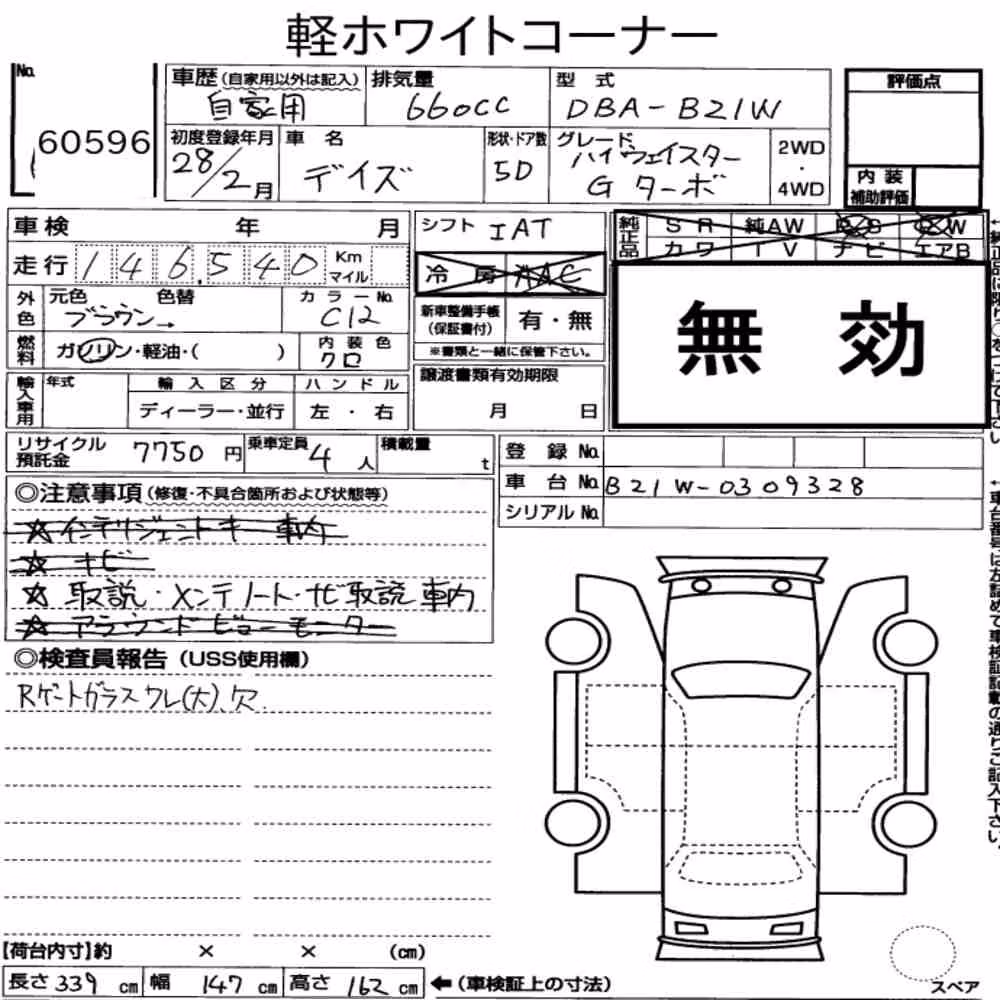 軽ホワイトコーナー
No. 60596
車歴 (自家用以外は記入) 自家用
排気量 660CC
型式 DBA-B21W
評価点
初度登録年月 28/2月
車名 デイズ
形状・ドア数 5D
グレード ハイウェイスター
G ターボ
2WD
・
4WD
内装
補助評価
車検 年 月
シフト IAT
純正品 SR 純AW P/S P/W
カワ TV ナビ エアB
走行 146,540 Km マイル
冷房 AAC
外色 元色 色替 ブラウン→
カラーNo. C12
新車整備手帳
(保証書付) 有・無
※書類と一緒に保管下さい。
無効
燃料 ガソリン・軽油・( )
内装色 クロ
輸入車用 年式 輸入区分 ハンドル
ディーラー・並行 左・右
譲渡書類有効期限
月 日
リサイクル
預託金 7750円
乗車定員 4人
積載量 t
登録No.
車台No. B21W-0309328
シリアルNo.
◎注意事項 (修復・不具合箇所および状態等)
☆ インテリジェントキー 車内
☆ ナビ
☆ 取説・メンテノート・ナビ取説 車内
☆ アラウンドビューモニター
◎検査員報告 (USS使用欄)
Rゲートガラスワレ(大)、欠
【荷台内寸】約 × × (cm)
長さ 339 cm 幅 147 cm 高さ 162 cm ←(車検証上の寸法)
スペア
←車台番号は左詰めで車検証記載の通りご記入下さい。